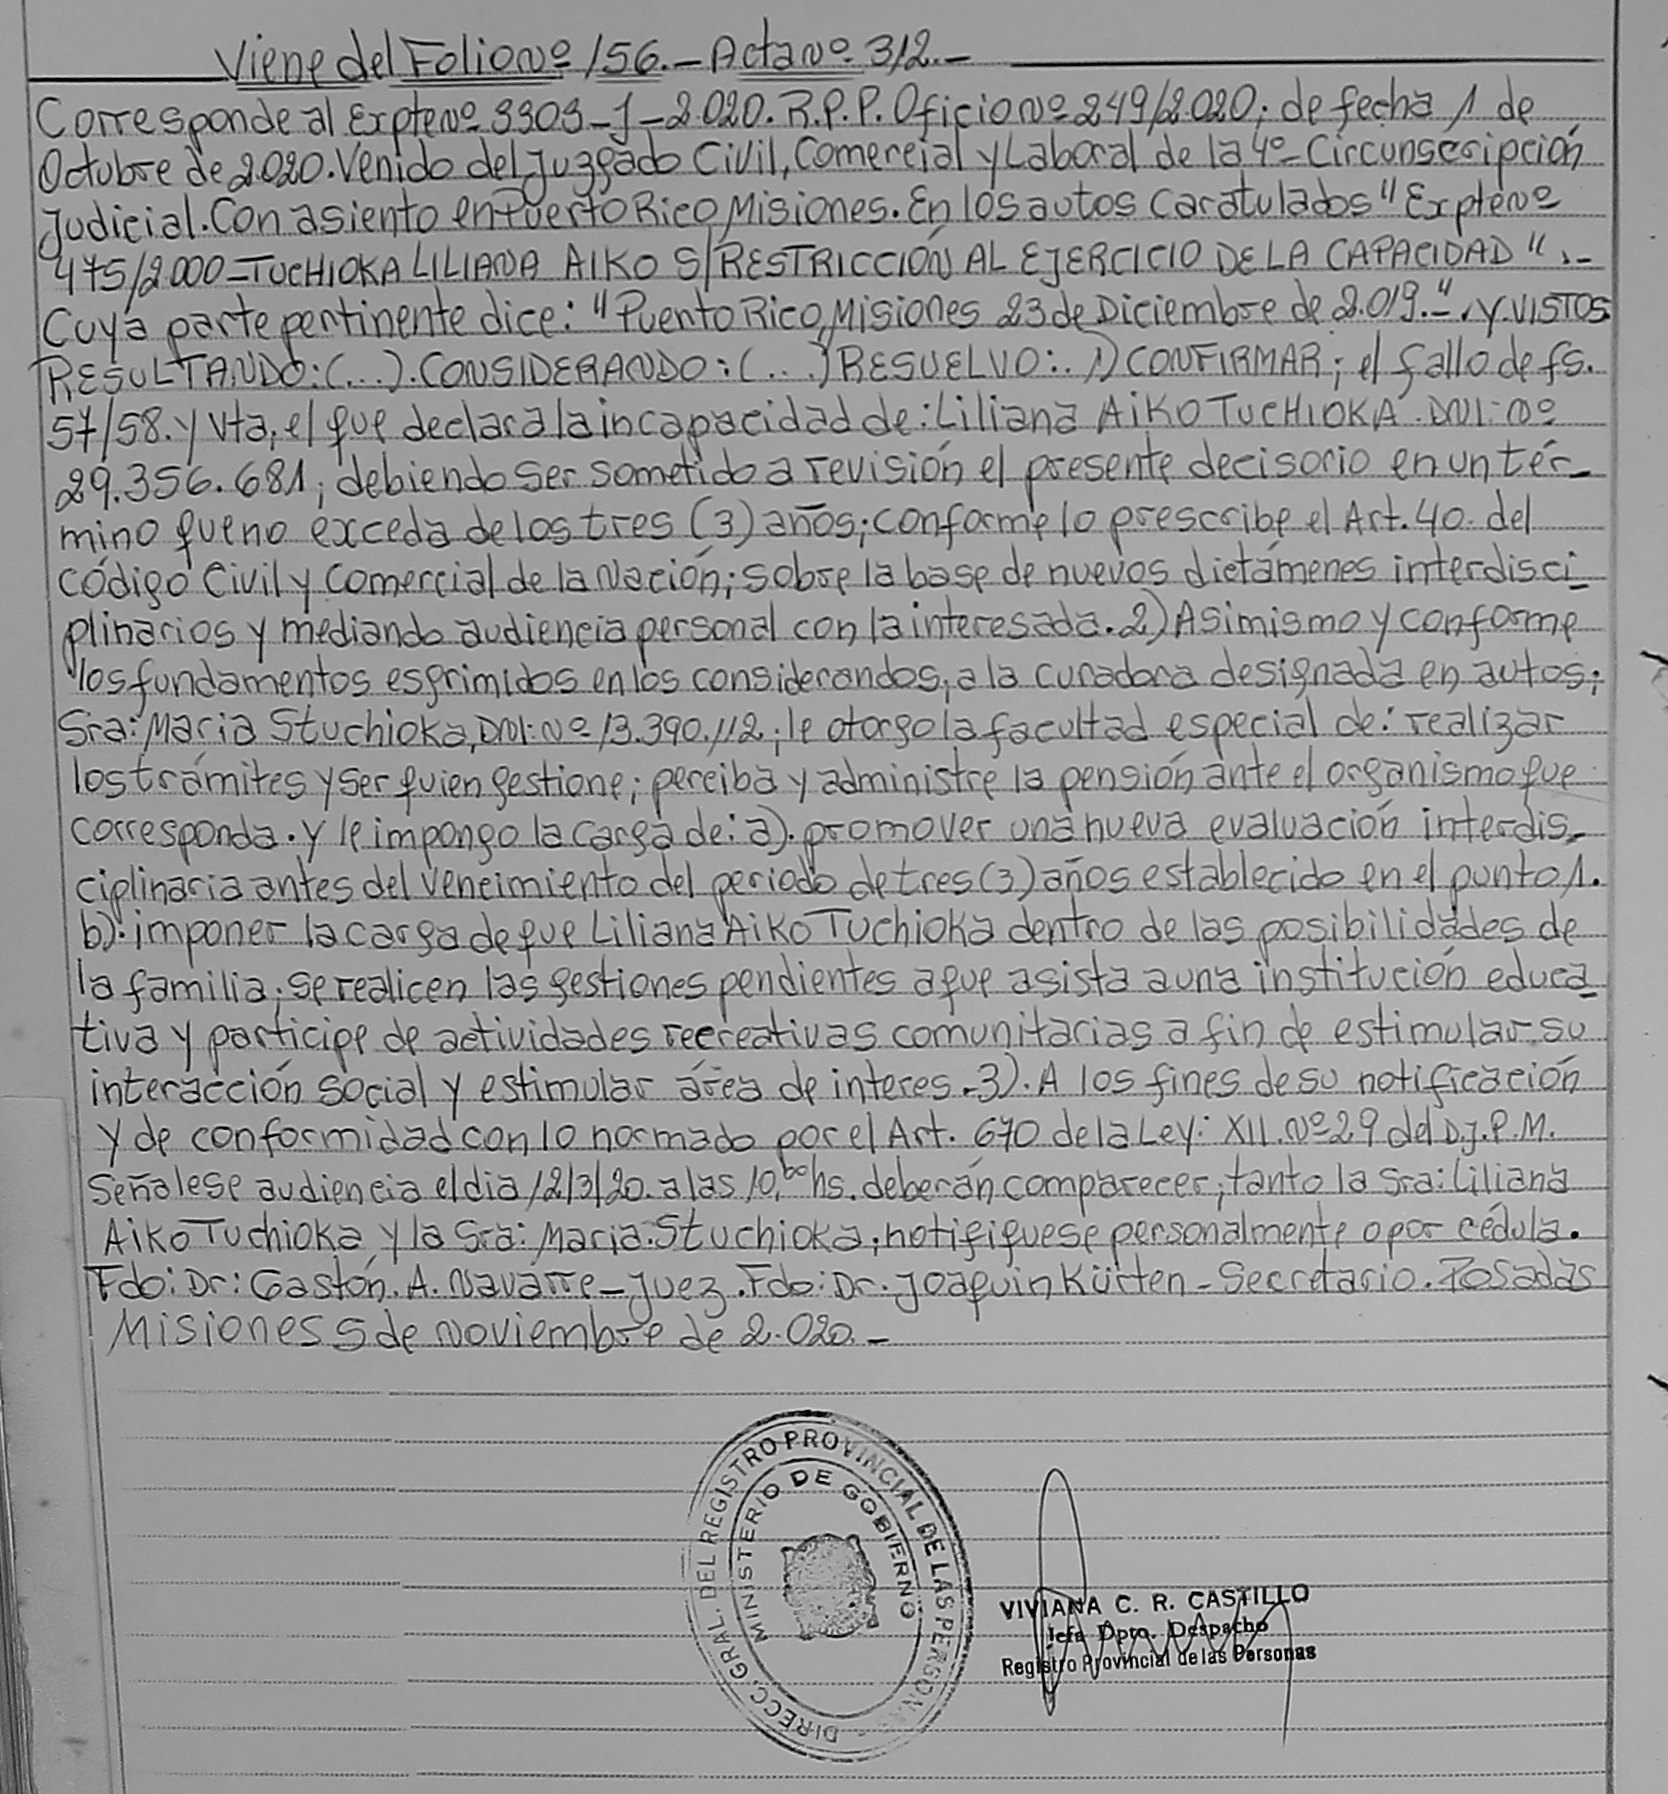 Viene del Folio Nº 156.- Acta Nº 312.-
Corresponde al Expte Nº 3303-J-2.020. R.P.P. Oficio Nº 249/2.020; de fecha 1 de
Octubre de 2.020. Venido del Juzgado Civil, Comercial y Laboral de la 4º Circunscripción
Judicial. Con asiento en Puerto Rico Misiones. En los autos Caratulados "Expte Nº
475/2.000 - TUCHIOKA LILIANA AIKO S/RESTRICCIÓN AL EJERCICIO DE LA CAPACIDAD".-
Cuya parte pertinente dice: "Puerto Rico, Misiones 23 de Diciembre de 2.019.-". Y VISTOS
RESULTANDO: (...). CONSIDERANDO: (...) RESUELVO:. 1) CONFIRMAR; el fallo de fs.
57/58. y Vta; el que declara la incapacidad de: Liliana AIKO TUCHIOKA. DNI: Nº
29.356.681; debiendo ser sometido a revisión el presente decisorio en un tér-
mino que no exceda de los tres (3) años; conforme lo prescribe el Art. 40. del
código Civil y Comercial de la Nación; sobre la base de nuevos dictámenes interdisci-
plinarios y mediando audiencia personal con la interesada. 2) Asimismo y conforme
los fundamentos esgrimidos en los considerandos; a la curadora designada en autos;
Sra: Maria Stuchioka, DNI: Nº 13.390.112; le otorgo la facultad especial de: realizar
los trámites y ser quien gestione; perciba y administre la pensión ante el organismo que
corresponda. y le impongo la carga de: a). promover una nueva evaluación interdis-
ciplinaria antes del vencimiento del periodo de tres (3) años establecido en el punto 1.
b): imponer la carga de que Liliana Aiko Tuchioka dentro de las posibilidades de
la familia; se realicen las gestiones pendientes a que asista a una institución educa-
tiva y participe de actividades recreativas comunitarias a fin de estimular su
interacción social y estimular área de interes.-3). A los fines de su notificación
y de conformidad con lo normado por el Art. 670 de la Ley: XII. Nº 29 del D.J.P.M.
Señalese audiencia el dia 12/3/20. a las 10,00 hs. deberán comparecer; tanto la Sra: Liliana
Aiko Tuchioka y la Sra: Maria Stuchioka; notifiquese personalmente o por cédula.
Fdo: Dr: Gastón. A. Navarre - Juez. Fdo: Dr. Joaquin Kütten - Secretario. Posadas
Misiones 5 de Noviembre de 2.020.-
DIRECC. GRAL. DEL REGISTRO PROVINCIAL DE LAS PERSONAS
MINISTERIO DE GOBIERNO
VIVIANA C. R. CASTILLO
Jefa Dpto. Despacho
Registro Provincial de las Personas